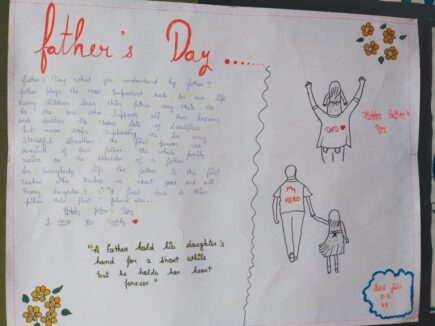 father's Day......
father's Day what you understand by father?
father plays the Most Important role in our life
Every children loves their father very Much. He
is the one who supports all our dreams
and desires. He Makes lots of sacrifices
but never stops supporting us. In every
stressful situation the first person we
of our father. The whole family
relies on the shoulder of a father.
In Everybody's life the father is the first
teacher who teaches us about good and evil.
Every daughter's first love is their
father their first friend also.
Happy father's Day
I love my Daddy
"A father hold his daughter's
hand for a short while
but he holds her heart
forever."
DAD
Happy father's
Day
MY
HERO